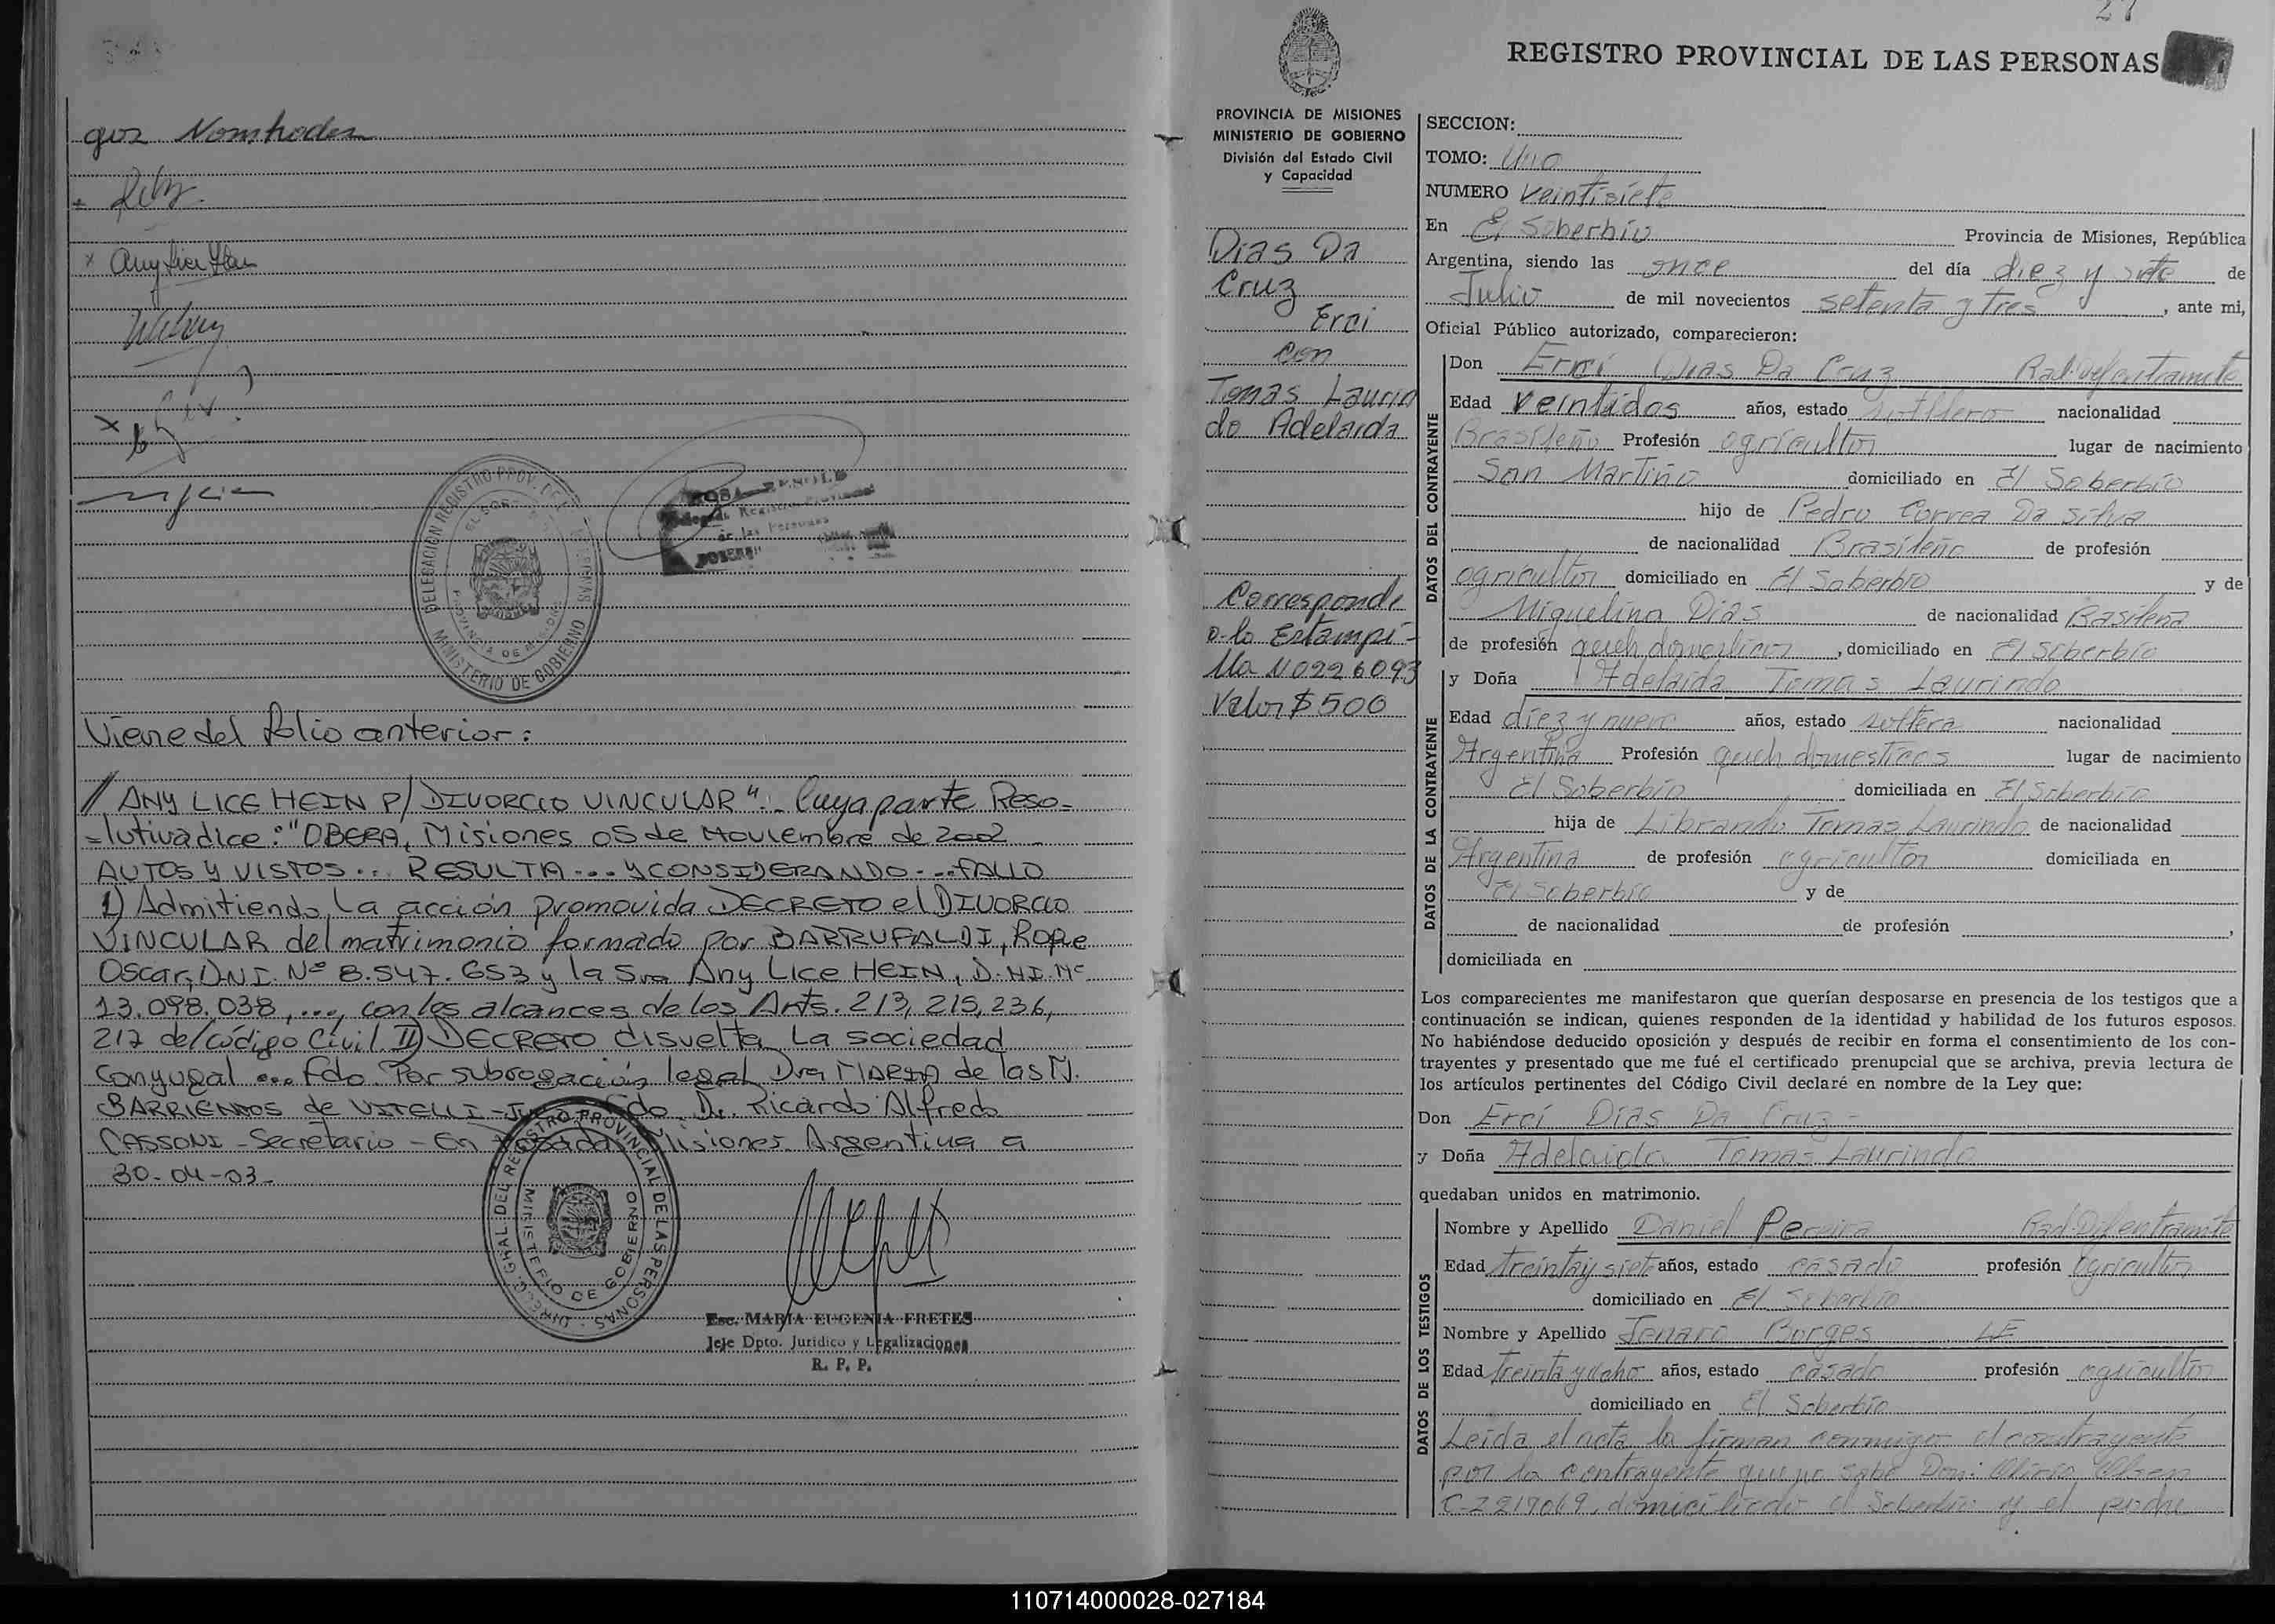 qus Nomhodes
Any Lice Hein
DELEGACION REGISTRO PROV. DE LAS PERSONAS
EL SOBERBIO
PROVINCIA DE MISIONES
MINISTERIO DE GOBIERNO
Registro Provincial
de las Personas
Viene del folio anterior:
// ANY LICE HEIN P/ DIVORCIO VINCULAR". Cuya parte Reso=
=lutiva dice: "OBERA, Misiones 05 de Noviembre de 2002
AUTOS Y VISTOS... RESULTA... Y CONSIDERANDO... FALLO
1) Admitiendo la acción promovida DECRETO el DIVORCIO
VINCULAR del matrimonio formado por BARRUFALDI, Roque
Oscar, D.N.I. Nº 8.547.653 y la Sra Any Lice HEIN, D.N.I. Nº
13.098.038, ..., con los alcances de los Arts. 213, 215, 236,
217 del código Civil II) DECRETO disuelta La sociedad
conyugal ... Fdo. Por subrogación legal Dra MARIA de las M.
BARRIENTOS de VITELLI - Fdo. Dr. Ricardo Alfredo
CASSONI - Secretario - En Posadas Misiones Argentina a
30-04-03-
DIRECC. GRAL. DEL REGISTRO PROVINCIAL DE LAS PERSONAS
MINISTERIO DE GOBIERNO
Esc. MARIA EUGENIA FRETES
Jefe Dpto. Jurídico y Legalizaciones
R. P. P.
27
REGISTRO PROVINCIAL DE LAS PERSONAS
PROVINCIA DE MISIONES
MINISTERIO DE GOBIERNO
División del Estado Civil
y Capacidad
Dias Da
Cruz
Erci
con
Tomas Laurin
do Adelaida
Corresponde
a la Estampi-
lla N0226093
Valor $500
SECCION:
TOMO: Uno
NUMERO veintisiete
En El Soberbio Provincia de Misiones, República
Argentina, siendo las once del día diez y siete de
Julio de mil novecientos setenta y tres, ante mi,
Oficial Público autorizado, comparecieron:
DATOS DEL CONTRAYENTE
Don Erci Dias Da Cruz Rad. Def en tramite
Edad veintidos años, estado soltero nacionalidad
Brasileño Profesión agricultor lugar de nacimiento
San Martiño domiciliado en El Soberbio
hijo de Pedro Correa Da Silva
de nacionalidad Brasileño de profesión
agricultor domiciliado en El Soberbio y de
Miguelina Dias de nacionalidad Brasileña
de profesión queh domesticos, domiciliado en El Soberbio
DATOS DE LA CONTRAYENTE
y Doña Adelaida Tomas Laurindo
Edad diez y nueve años, estado soltera nacionalidad
Argentina Profesión queh domesticos lugar de nacimiento
El Soberbio domiciliada en El Soberbio
hija de Librando Tomas Laurindo de nacionalidad
Argentina de profesión agricultor domiciliada en
El Soberbio y de
de nacionalidad de profesión ,
domiciliada en
Los comparecientes me manifestaron que querían desposarse en presencia de los testigos que a
continuación se indican, quienes responden de la identidad y habilidad de los futuros esposos.
No habiéndose deducido oposición y después de recibir en forma el consentimiento de los con-
trayentes y presentado que me fué el certificado prenupcial que se archiva, previa lectura de
los artículos pertinentes del Código Civil declaré en nombre de la Ley que:
Don Erci Dias Da Cruz -
y Doña Adelaida Tomas Laurindo
quedaban unidos en matrimonio.
DATOS DE LOS TESTIGOS
Nombre y Apellido Daniel Pereira Rad. Def en tramite
Edad treinta y siete años, estado casado profesión agricultor
domiciliado en El Soberbio
Nombre y Apellido Jenaro Borges LE
Edad treinta y ocho años, estado casado profesión agricultor
domiciliado en El Soberbio
Leida el acta la firman conmigo el contrayente
por la contrayente que no sabe Don:
C-Z 217069, domiciliado El Soberbio y el padre
110714000028-027184